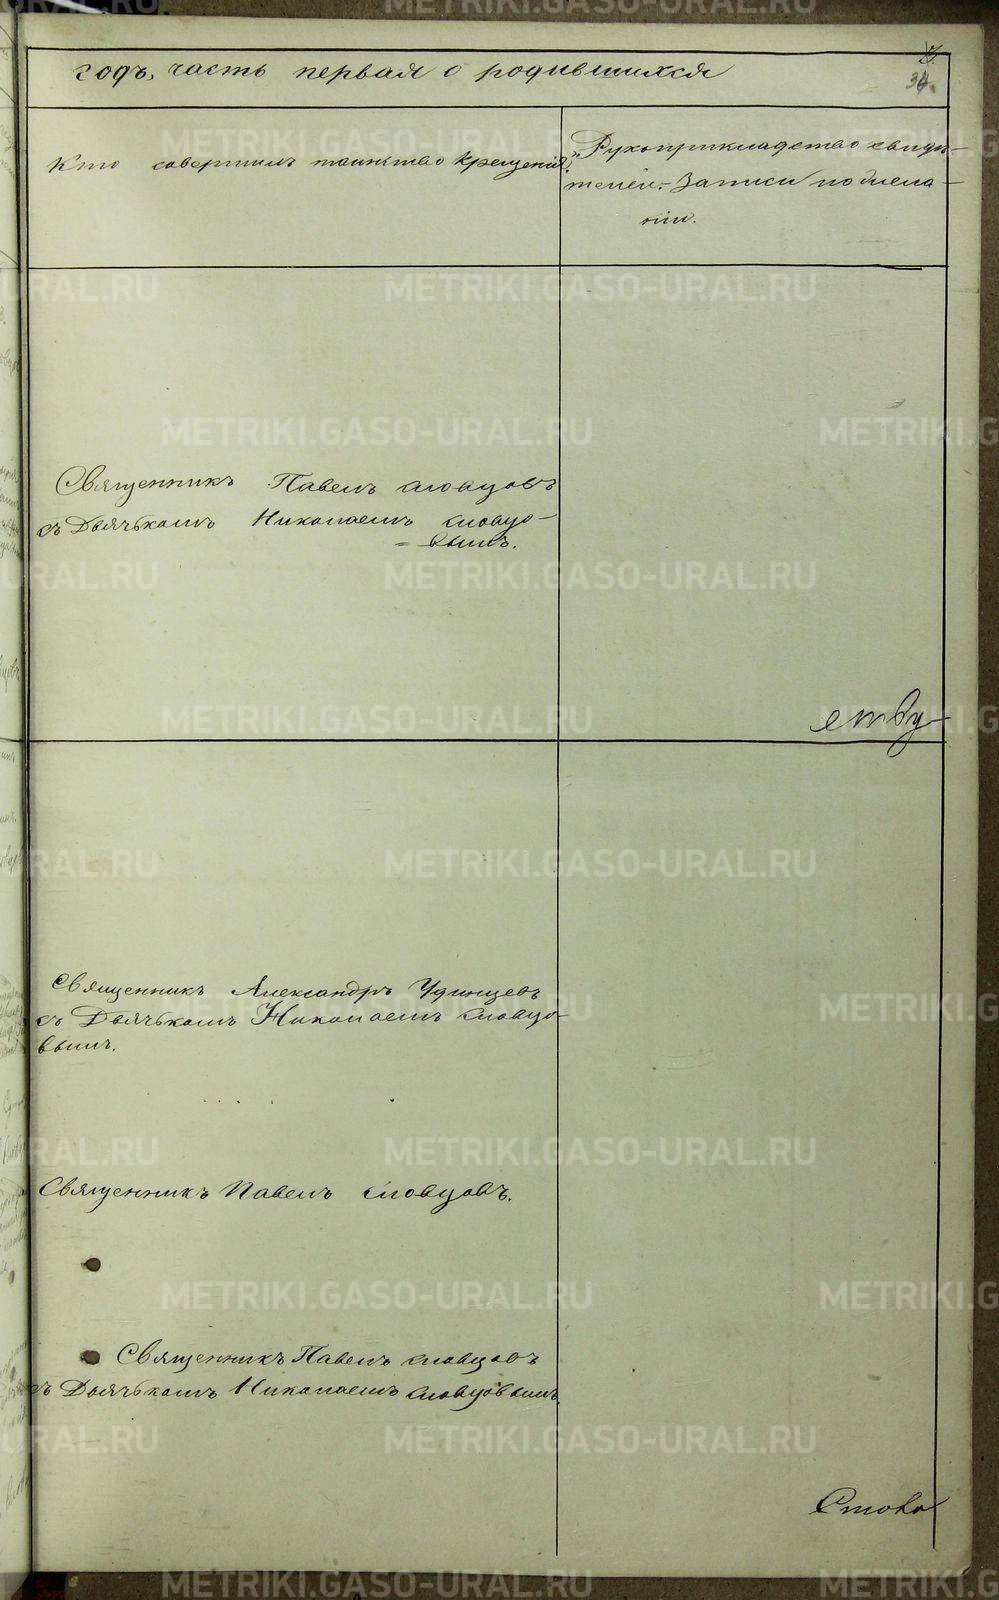 годъ, часть первая о родившихся
34.
Кто совершилъ таинство крещенія?
Рукоприкладство свидѣ-
телей записи по жела-
нію.
Священникъ Павелъ Словцовъ
съ Дьячькомъ Николаемъ Словцо-
вымъ.
ству
Священникъ Александръ Удинцевъ
съ Дьячькомъ Николаемъ Словцо-
вымъ.
Священникъ Павелъ Словцовъ.
Священникъ Павелъ Словцовъ
съ Дьячькомъ Николаемъ Словцовымъ.
METRIKI.GASO-URAL.RU